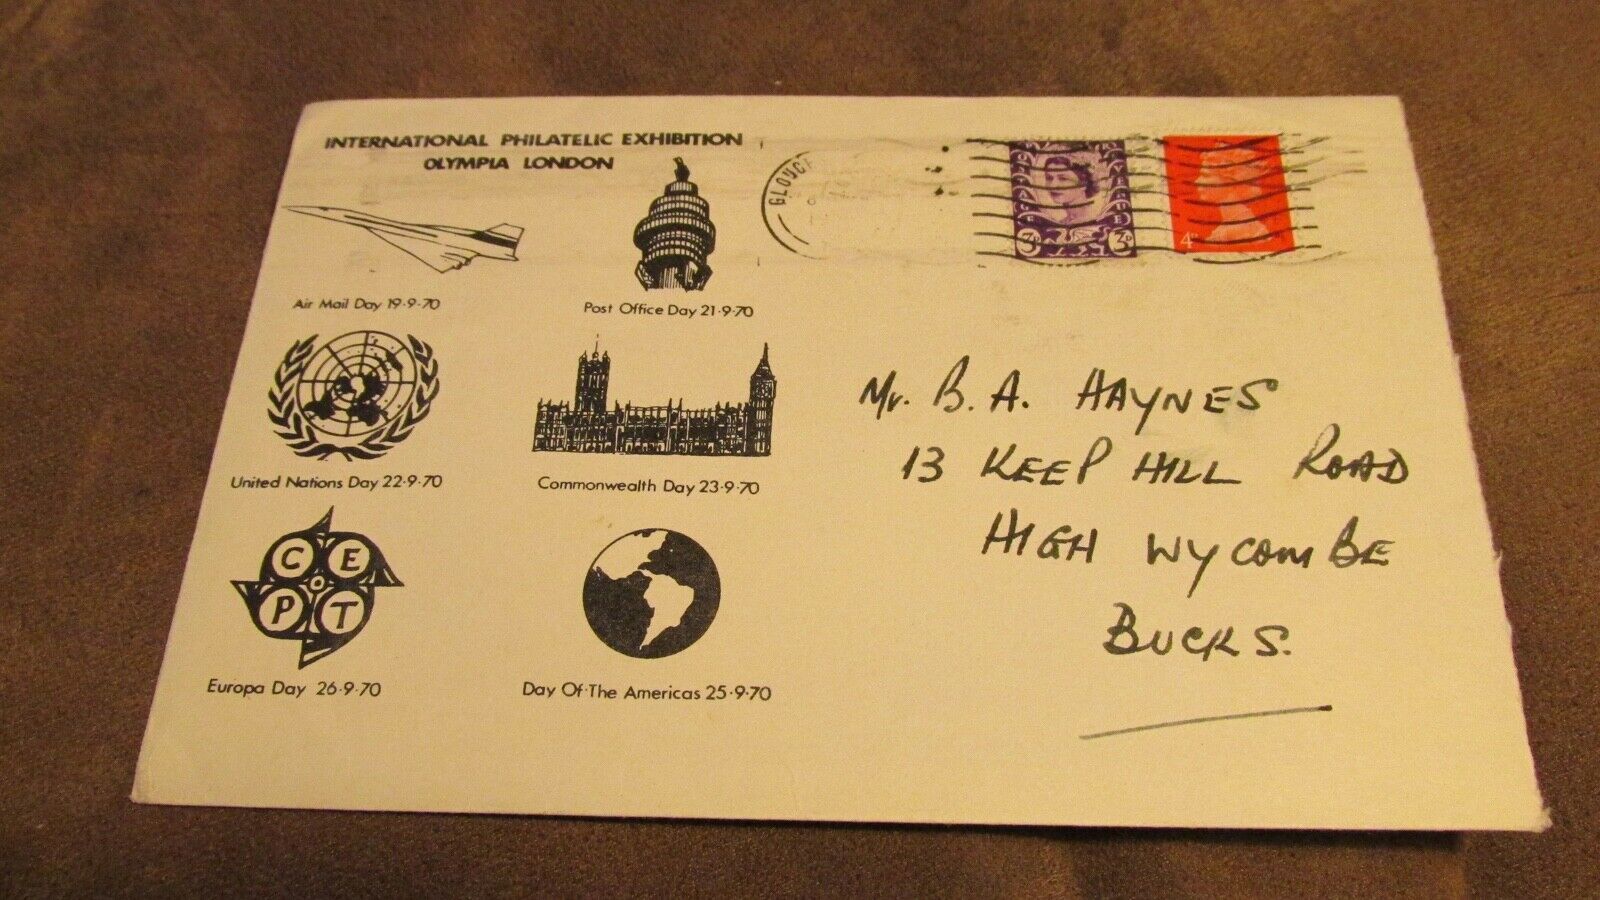 INTERNATIONAL PHILATELIC EXHIBITION
OLYMPIA LONDON
Air Mail Day 19·9·70
Post Office Day 21·9·70
United Nations Day 22·9·70
Commonwealth Day 23·9·70
C E
P T
Europa Day 26·9·70
Day Of The Americas 25·9·70
GLOUCE
3D 3D
4D
Mr. B. A. HAYNES
13 KEEP HILL ROAD
HIGH WYCOMBE
BUCKS.